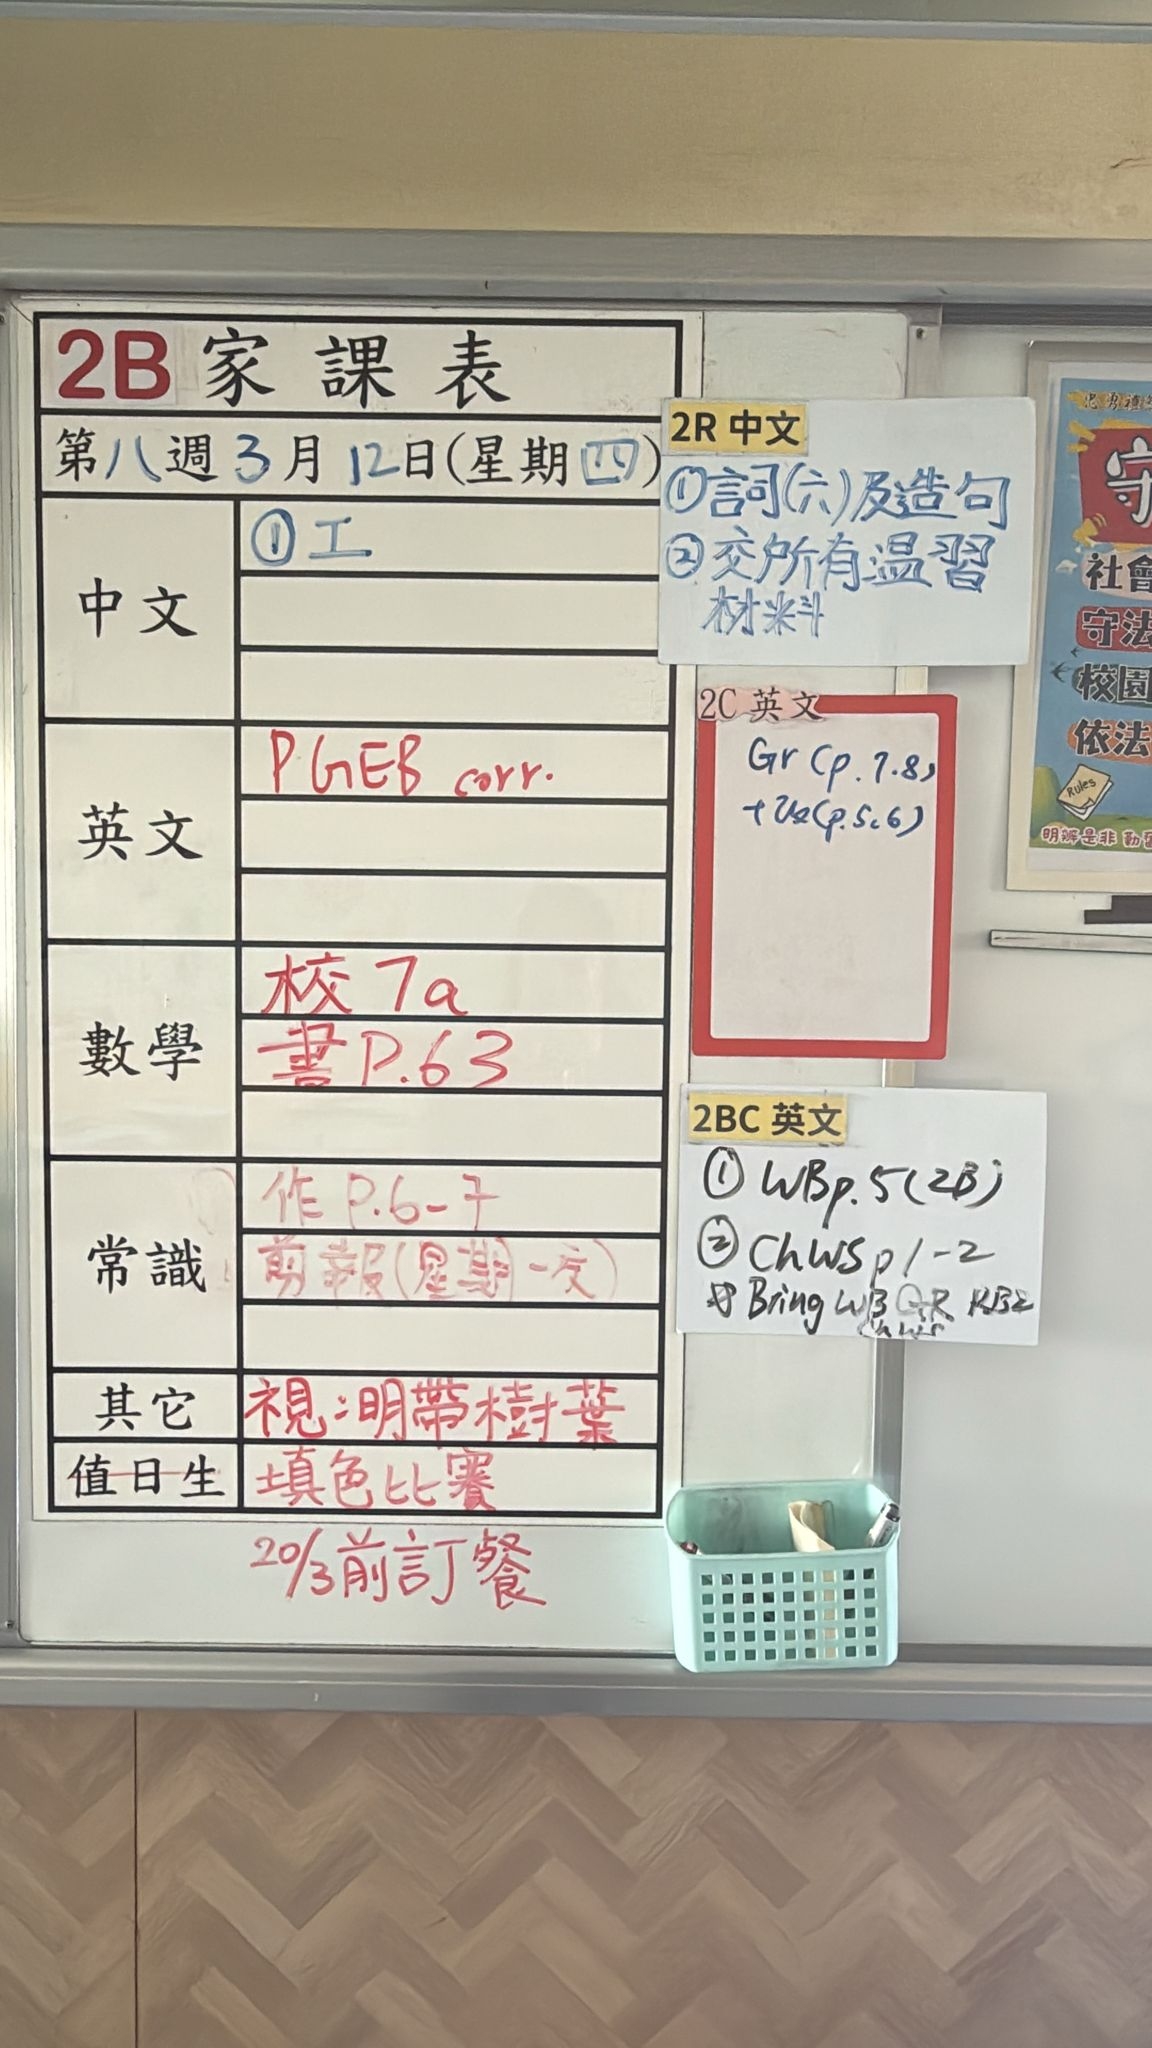 2B 家課表
第八週 3月12日(星期四)
中文
①工
英文
PGEB corr.
數學
校 7a
書 P.63
常識
作 P.6-7
剪報(星期一交)
其它
視:明帶樹葉
值日生
填色比賽
20/3前訂餐
2R 中文
①詞(六)及造句
②交所有温習
材料
2C 英文
Gr (p.7.8)
(p.5,6)
2BC 英文
① WBp.5(2B)
② ChWS p1-2
Bring WB GR
ChWS
守
社會
守法
校園
依法
Rules
明辨是非 勤